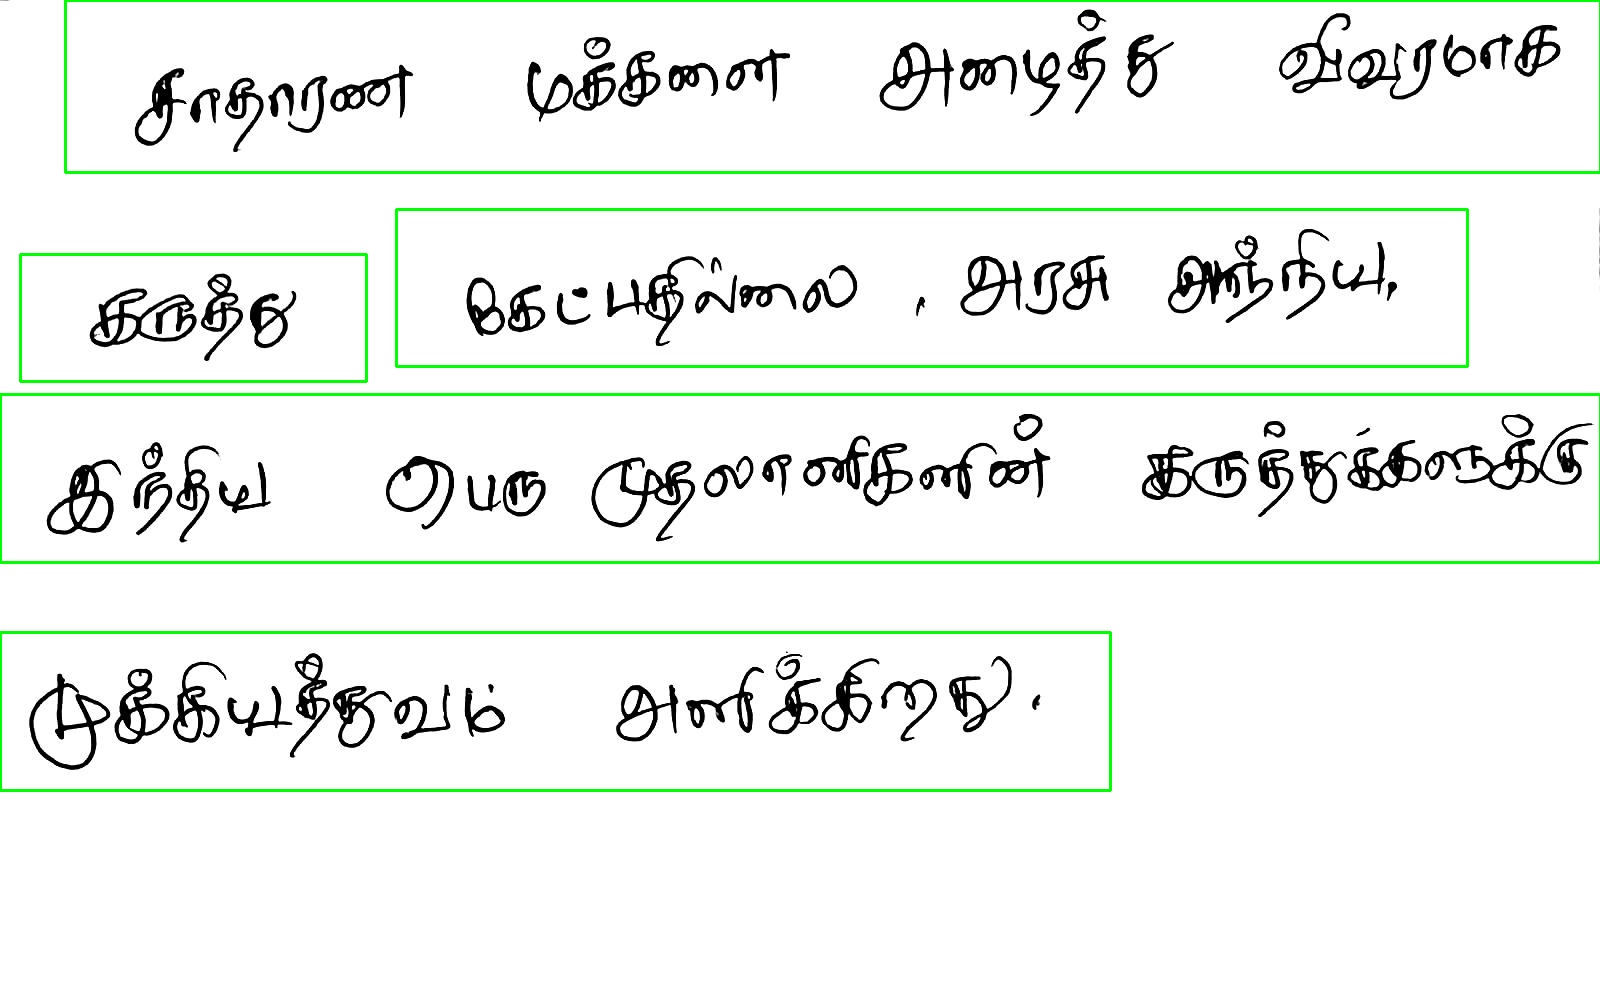 சாதாரண மக்களை அழைத்து விவரமாக
கருத்து கேட்பதில்லை . அரசு அந்நிய,
இந்திய பெரு முதலாளிகளின் கருத்துக்களுக்கு
முக்கியத்துவம் அளிக்கிறது .